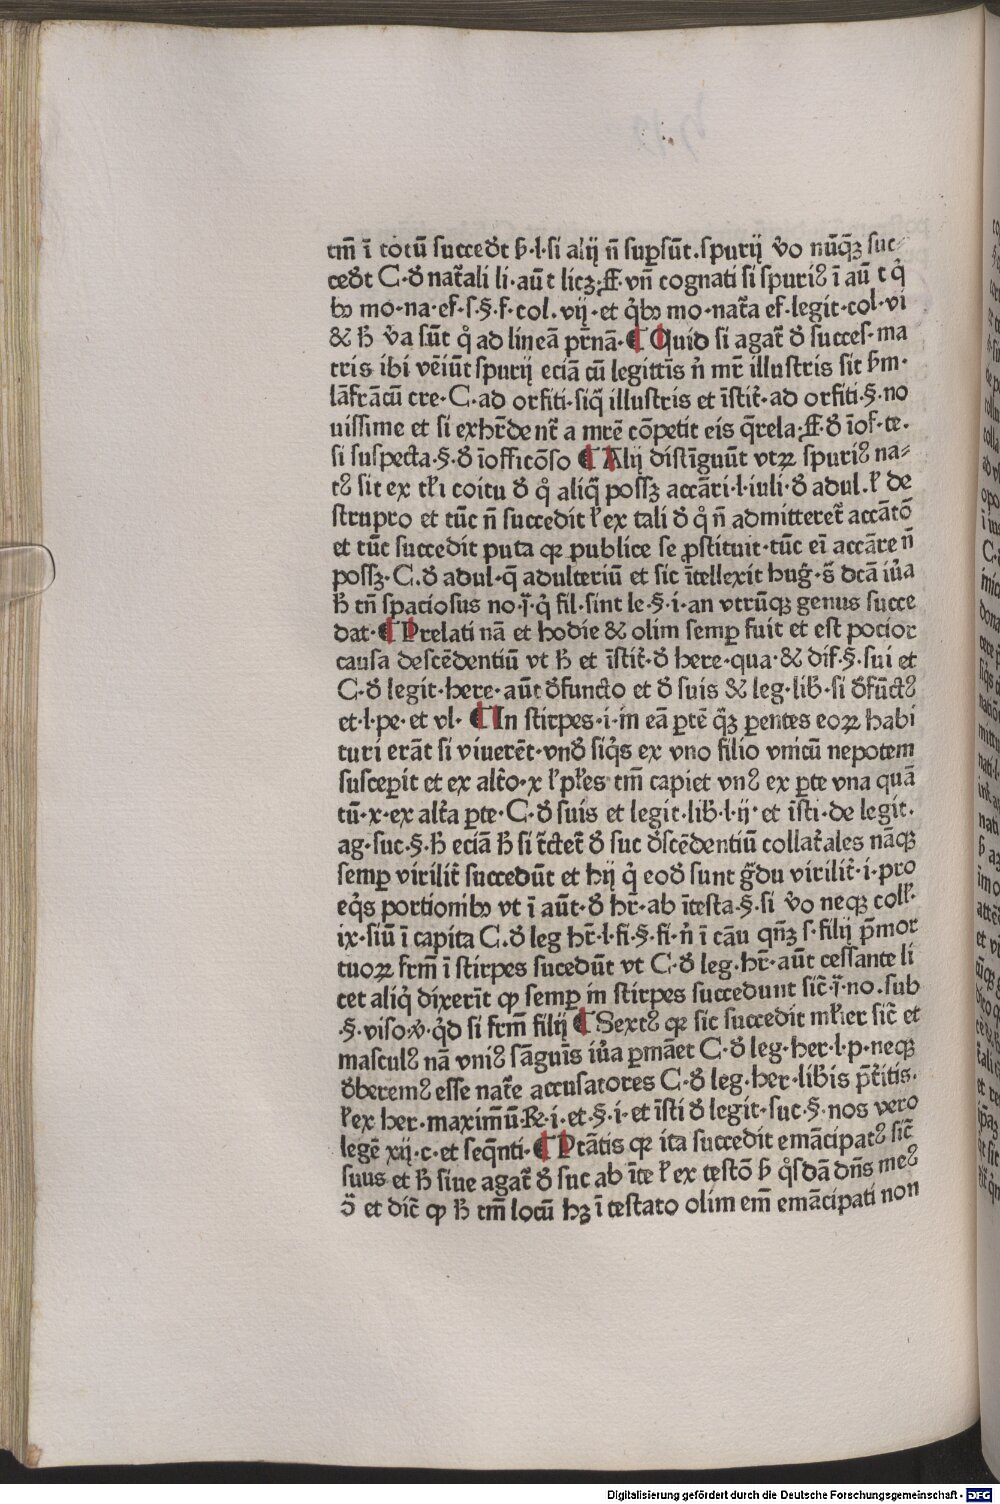 tm̄ ī totū succedt̄ h̄·l·si alij n̄ suꝑsūt. spurij v̊o nūq̄ꝫ suc⸗
cedt̄ C·đ nat̄ali li·aūt licꝫ·ff·vn̄ cognati si spuriꝰ ī aūt q̇
bꝫ mo·na·ef·s·§·f·col·vij·et q̇bꝫ mo·nat̄a ef·legit·col·vi
& h̄ v̊a sūt q̊ ad lineā pr̄nā·¶ Quid si agat̄ đ succes·ma
tris ibi vēiūt spurij eciā cū legittīs n̄ mr̄ illustris sit h̄m·
lāfrācū cre·C·ad orfiti·siq̄ illustris et īstit̄·ad orfiti·§·no
uissime et si exhr̄dent̄ a mrē cōpetit eis q̄rela·ff·đ īof·te·
si suspecta·§·đ īofficōso ¶ Alij distīguūt vtꝝ spuriꝰ na⸗
tꝰ sit ex tłi coitu đ q̊ aliq̄ possꝫ accāri·l·iuli·đ adul·ł de
strupro et tūc n̄ succedit ł ex tali đ q̊ n̄ admitteret̄ accātō
et tūc succedit puta qꝛ publice se ꝓstituit·tūc ei accāre n̄
possꝫ·C·đ adul·q̄ adulteriū et sic ītellexit hug̊·s̄ dc̄ā iu̇a
h̄ tn̄ spaciosus no·j̄·q̇ fil·sint le·§·i·an vtrūqꝫ genus succe
dat·¶ Prelati nā et hodie & olim semꝑ fuit et est pocior
causa descēdentiū vt h̄ et īstit̄·đ here·qua·& dif·§·sui et
C·đ legit·here·aūt đfuncto et đ suis & leg·lib̄·si đfūctꝰ
et·l·pe·et vl·¶ In stirpes·i·in eā ꝑtē q̄ꝫ ꝑentes eoꝝ habi
turi erāt si viuerēt·vnđ siq̇s ex vno filio vnicū nepotem
susceꝑit et ex alt̄o·x ł płes tm̄ capiet vnꝰ ex ꝑte vna quā
tū·x·ex alt̄a ꝑte·C·đ suis et legit·lib̄·l·ij·et īsti·de legit·
ag·suc·§·h̄ eciā h̄ si t̄ctet̄ đ suc đscēdentiū collat̄ales nāqꝫ
semꝑ virilit̄ succedūt et hij q̇ eođ sunt g̊du virilit̄·i·pro
eq̇s portionibꝫ vt ī aūt·đ hr̄·ab ītesta·§·si v̊o neqꝫ coll̄·
ix·siū ī capita C·đ leg hr̄·l·fi·§·fi·n̄ ī cāu qn̄ꝫ s·filij p̄mor
tuoꝝ frm̄ ī stirpes sucedūt vt C·đ leg·hr̄·aūt cessante li
cet aliq̇ dixerīt ꝙ semꝑ in stirpes succedunt sic̄·j̄·no·sub
·§·viso·v̊·q̊d si frm̄ filij ¶ Sextꝰ qꝛ sic succedit młier sic̄ et
masculꝰ nā vniꝰ sāguīs iu̇a ꝑmāet C·đ leg·her·l·p·neqꝫ
đberemꝰ esse nat̄e accusatores C·đ leg·her·lib̄is p̄t̄itis·
ł ex her·maxim̄ū·℞·i·et·§·i·et īsti đ legit·suc·§·nos vero
legē xij·c·et seq̄nti·¶ Ptātis qꝛ ita succedit emācipatꝰ sic̄
suus et h̄ siue agat̄ đ suc ab īte ł ex testō h̄ q̊sdā dn̄s meꝰ
ō et dic̄ ꝙ h̄ tm̄ locū hꝫ ī testato olim em̄ emācipati non
Digitalisierung gefördert durch die Deutsche Forschungsgemeinschaft - DFG